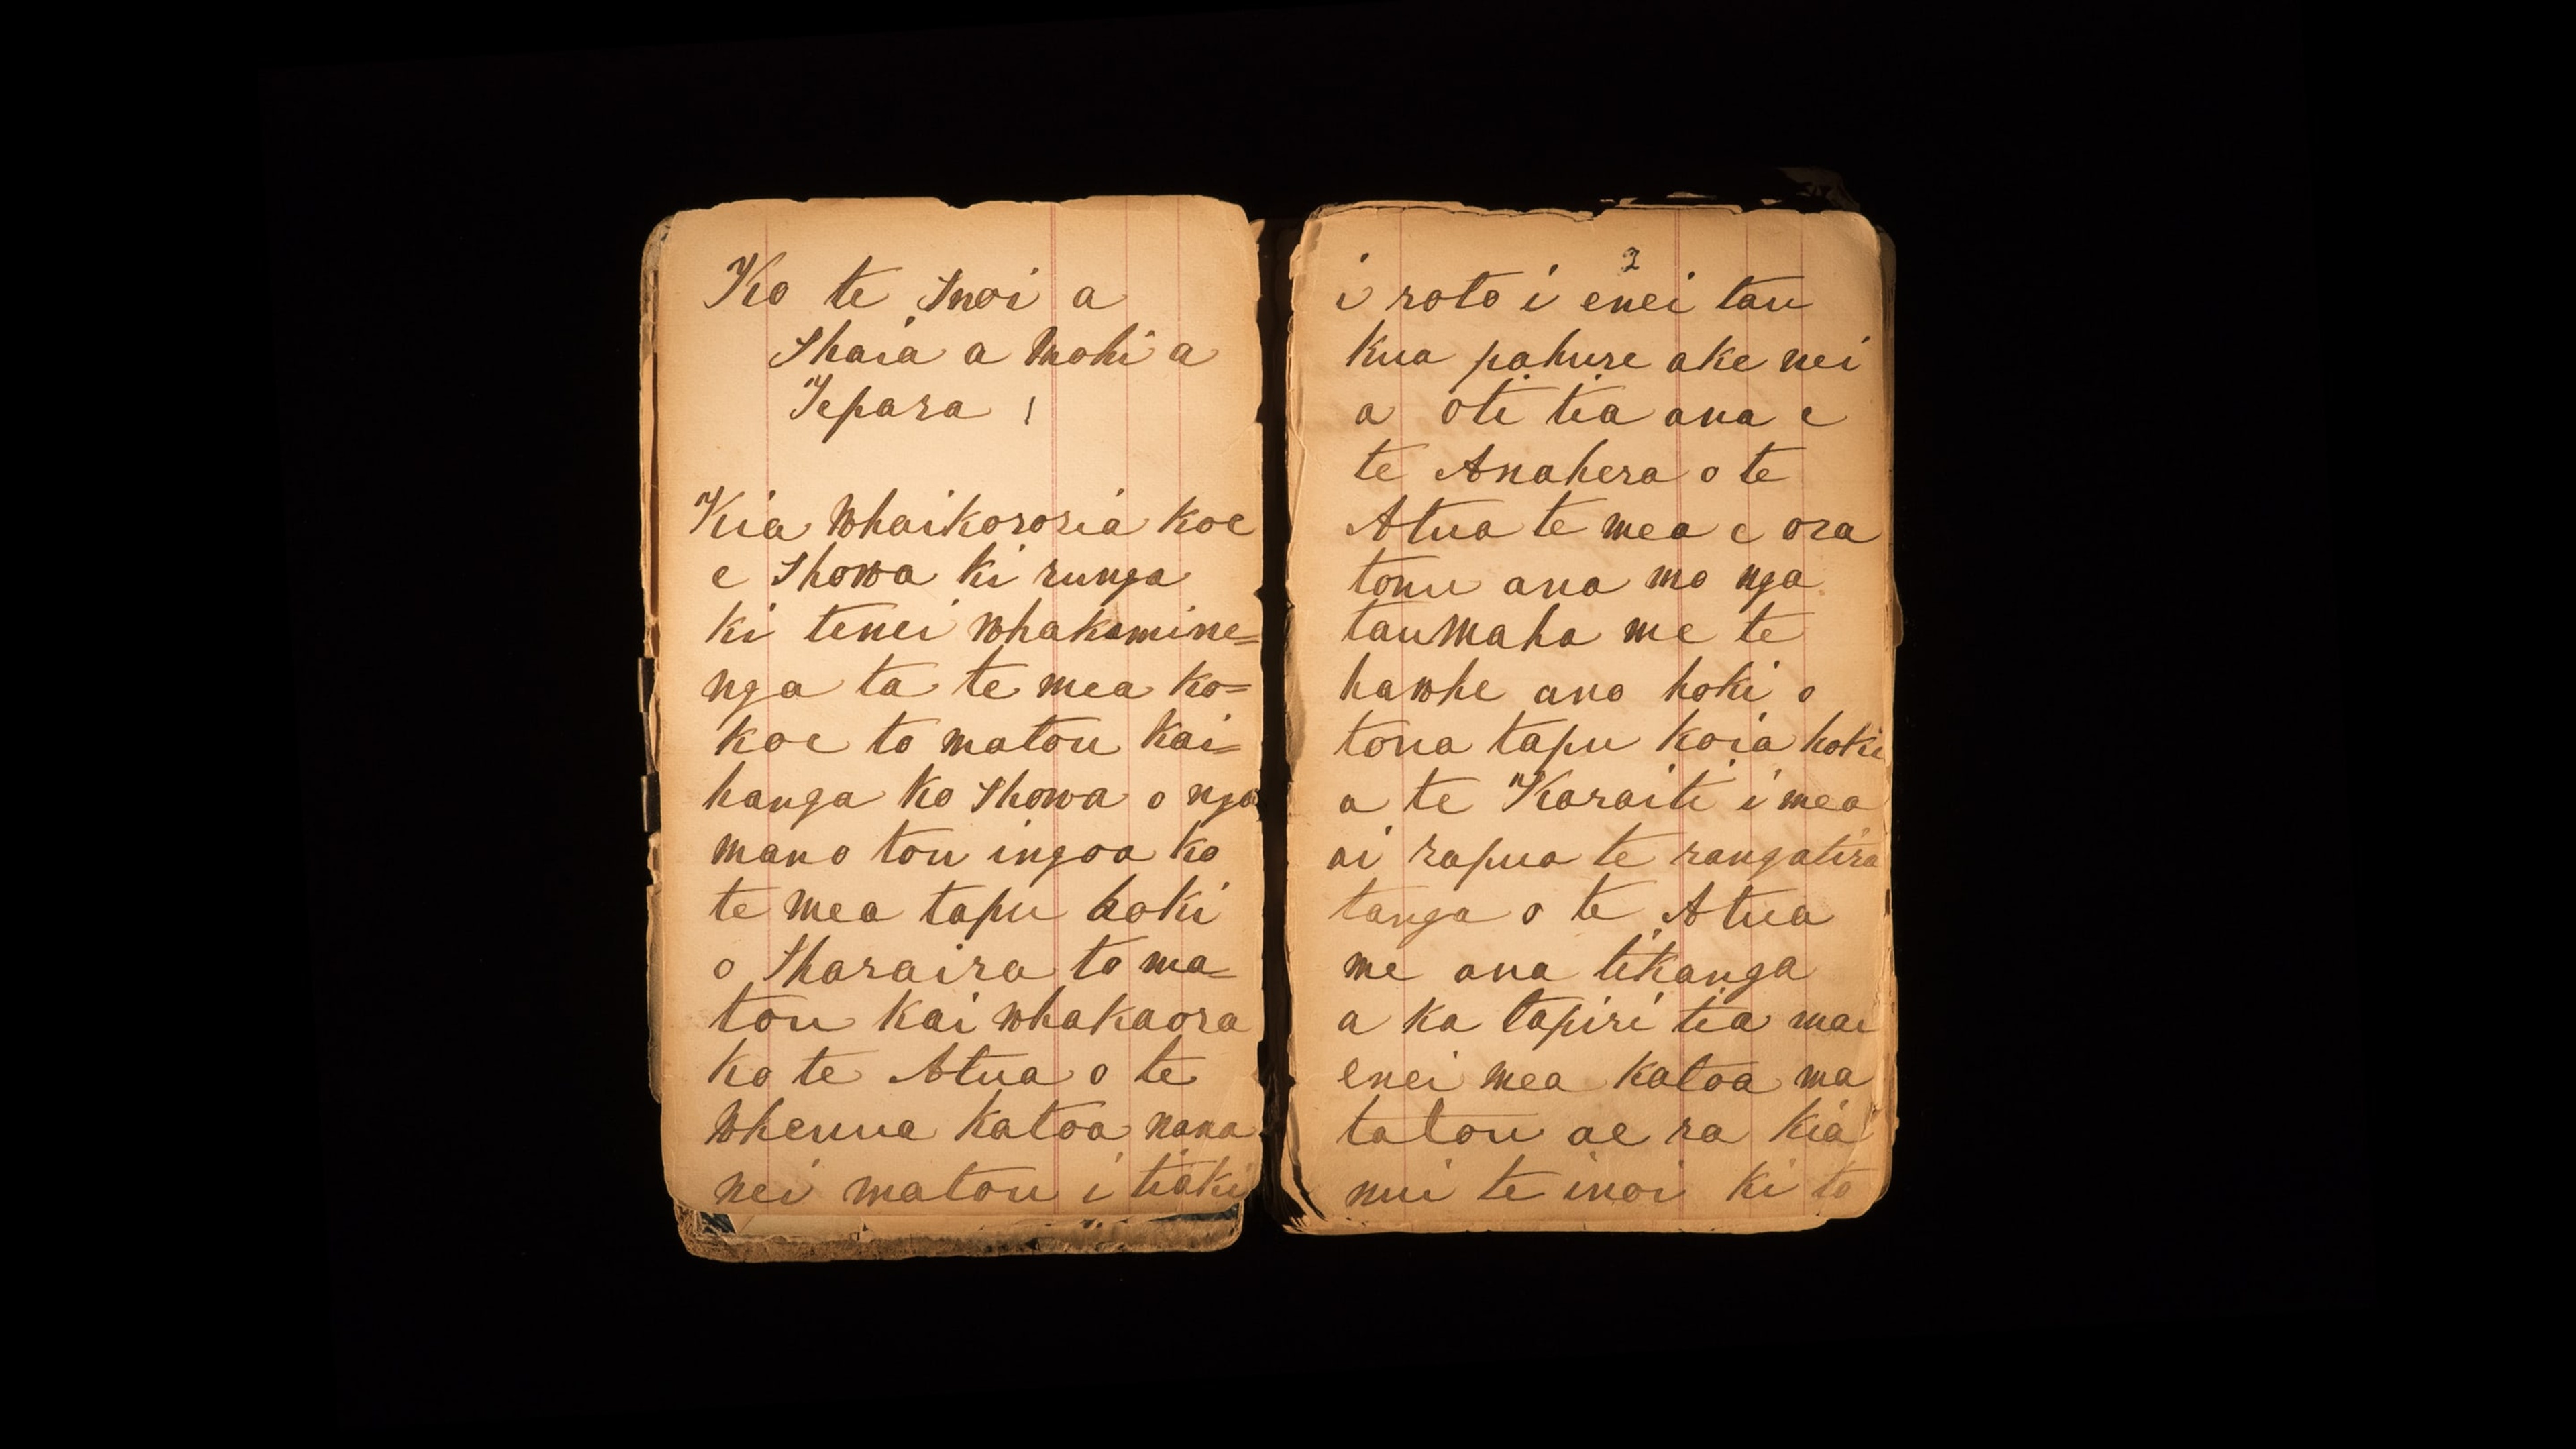 Ko te Inoi a
Ihaia a Mohi a
Tepara
Kia Whaikororia koe
e Ihowa ki runga
ki tenei Whakamine=
nga ta te mea ko=
koe to matou kai=
hanga ko Ihowa o nga
mano tou ingoa ko
te mea tapu hoki
o Iharaira to ma=
tou kai whakaora
ko te Atua o te
Whenua katoa nana
nei matou i tiaki
2
i roto i enei tau
kua pahure ake nei
a oti tia ana e
te Anahera o te
Atua te mea e ora
tonu ana mo nga
taumaha me te
hawhe ano hoki o
tona tapu koia hoki
a te Karaiti i mea
ai rapua te rangatira
tanga o te Atua
me ona tikanga
a ka tapiri tia mai
enei mea katoa ma
tatou ae ra kia
nui te inoi ki to